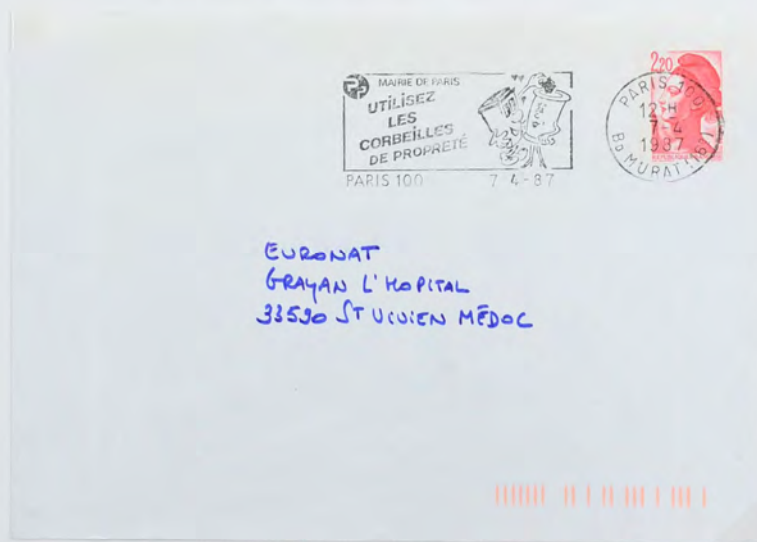 MAIRIE DE PARIS
UTILISEZ
LES
CORBEILLES
DE PROPRETÉ
PARIS 100 7-4-87
2,20
PARIS 100
12 H
7-4
1987
BD MURAT (16)
EURONAT
GRAYAN L'HOPITAL
33590 ST VIVIEN MÉDOC